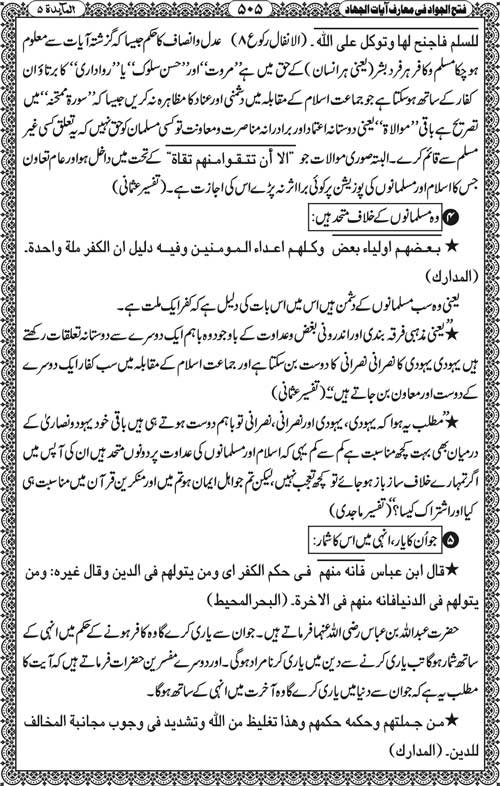 المآئدۃ ۵
۵۰۵
فتح الجواد فی معارف آیات الجھاد
للسلم فاجنح لھا وتوکل علی اللہ۔ (الانفال رکوع ۸) عدل وانصاف کا حکم جیسا کہ گزشتہ آیات سے معلوم
ہو چکا مسلم و کافر ہر فرد بشر (یعنی ہر انسان) کے حق میں ہے ”مروت“ اور ”حسن سلوک“ یا ”رواداری“ کا برتاؤ ان
کفار کے ساتھ ہو سکتا ہے جو جماعت اسلام کے مقابلہ میں دشمنی اور عناد کا مظاہرہ نہ کریں جیسا کہ ”سورۃ ممتحنہ“ میں
تصریح ہے باقی ”موالاۃ“ یعنی دوستانہ اعتماد اور برادرانہ مناصرت و معاونت تو کسی مسلمان کو حق نہیں کہ یہ تعلق کسی غیر
مسلم سے قائم کرے۔ البتہ صوری موالات جو ”الا أن تتقوا منھم تقاۃ“ کے تحت میں داخل ہو اور عام تعاون
جس کا اسلام اور مسلمانوں کی پوزیشن پر کوئی برا اثر نہ پڑے اس کی اجازت ہے۔ (تفسیر عثمانی)
۴ وہ مسلمانوں کے خلاف متحد ہیں:
★ بعضھم اولیاء بعض وکلھم اعداء المومنین وفیہ دلیل ان الکفر ملۃ واحدۃ۔
(المدارک)
یعنی وہ سب مسلمانوں کے دشمن ہیں اس میں اس بات کی دلیل ہے کہ کفر ایک ملت ہے۔
★ ”یعنی مذہبی فرقہ بندی اور اندرونی بغض و عداوت کے باوجود وہ باہم ایک دوسرے سے دوستانہ تعلقات رکھتے
ہیں یہودی یہودی کا نصرانی نصرانی کا دوست بن سکتا ہے اور جماعت اسلام کے مقابلہ میں سب کفار ایک دوسرے
کے دوست اور معاون بن جاتے ہیں“۔ (تفسیر عثمانی)
★ ”مطلب یہ ہوا کہ یہودی، یہودی اور نصرانی، نصرانی تو باہم دوست ہوتے ہی ہیں باقی خود یہود و نصاریٰ کے
درمیان بھی بہت کچھ مناسبت ہے کم سے کم یہی کہ اسلام اور مسلمانوں کی عداوت پر دونوں متحد ہیں ان کی آپس میں
اگر تمہارے خلاف ساز باز ہو جائے تو کچھ تعجب نہیں، لیکن تم جو اہل ایمان ہو تم میں اور منکرین قرآن میں مناسبت ہی
کیا اور اشتراک کیسا؟“ (تفسیر ماجدی)
۵ جو اُن کا یار، انہی میں اس کا شمار:
★ قال ابن عباس فانہ منھم فی حکم الکفر ای ومن یتولھم فی الدین وقال غیرہ: ومن
یتولھم فی الدنیا فانہ منھم فی الاخرۃ۔ (البحر المحیط)
حضرت عبداللہ بن عباس رضی اللہ عنہما فرماتے ہیں۔ جو ان سے یاری کرے گا وہ کافر ہونے کے حکم میں انہی کے
ساتھ شمار ہوگا تب یاری کرنے سے دین میں یاری کرنا مراد ہوگی۔ اور دوسرے مفسرین حضرات فرماتے ہیں کہ آیت کا
مطلب یہ ہے کہ جو ان سے دنیا میں یاری کرے گا وہ آخرت میں انہی کے ساتھ ہوگا۔
★ من جملتھم وحکمہ حکمھم وھذا تغلیظ من اللہ وتشدید فی وجوب مجانبۃ المخالف
للدین۔ (المدارک)